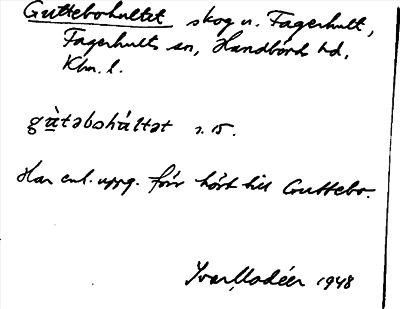 Guttebohultet skog u. Fagerhult,
Fagerhults sn, Handbörds hd,
Klm. l.
gàtəbohúltət s. 15.
Har enl. uppg. förr hört till Guttebo.
Ivar Modéer 1948